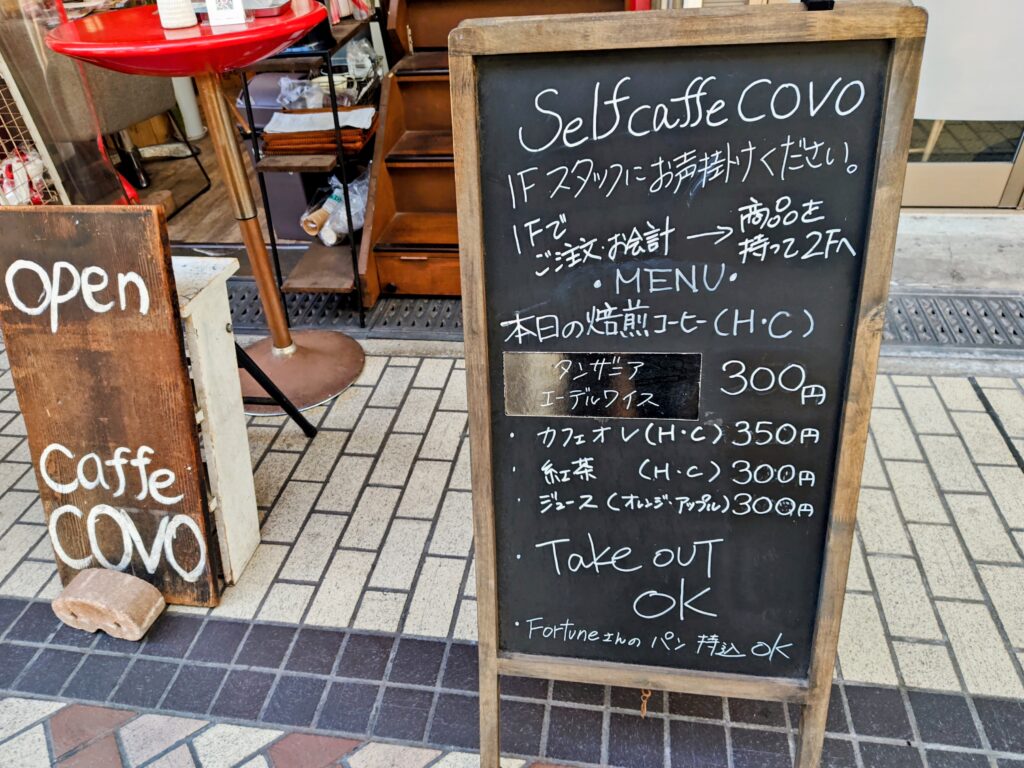 open
caffe
COVO
Selfcaffe COVO
1F スタッフにお声掛けください。
1Fで
ご注文・お会計 → 商品を
持って2Fへ
・MENU・
本日の焙煎コーヒー(H・C)
タンザニア
エーデルワイス
300円
・カフェオレ(H・C) 350円
・紅茶 (H・C) 300円
・ジュース(オレンジ・アップル) 300円
・Take OUT
OK
・Fortuneさんの パン 持込 OK